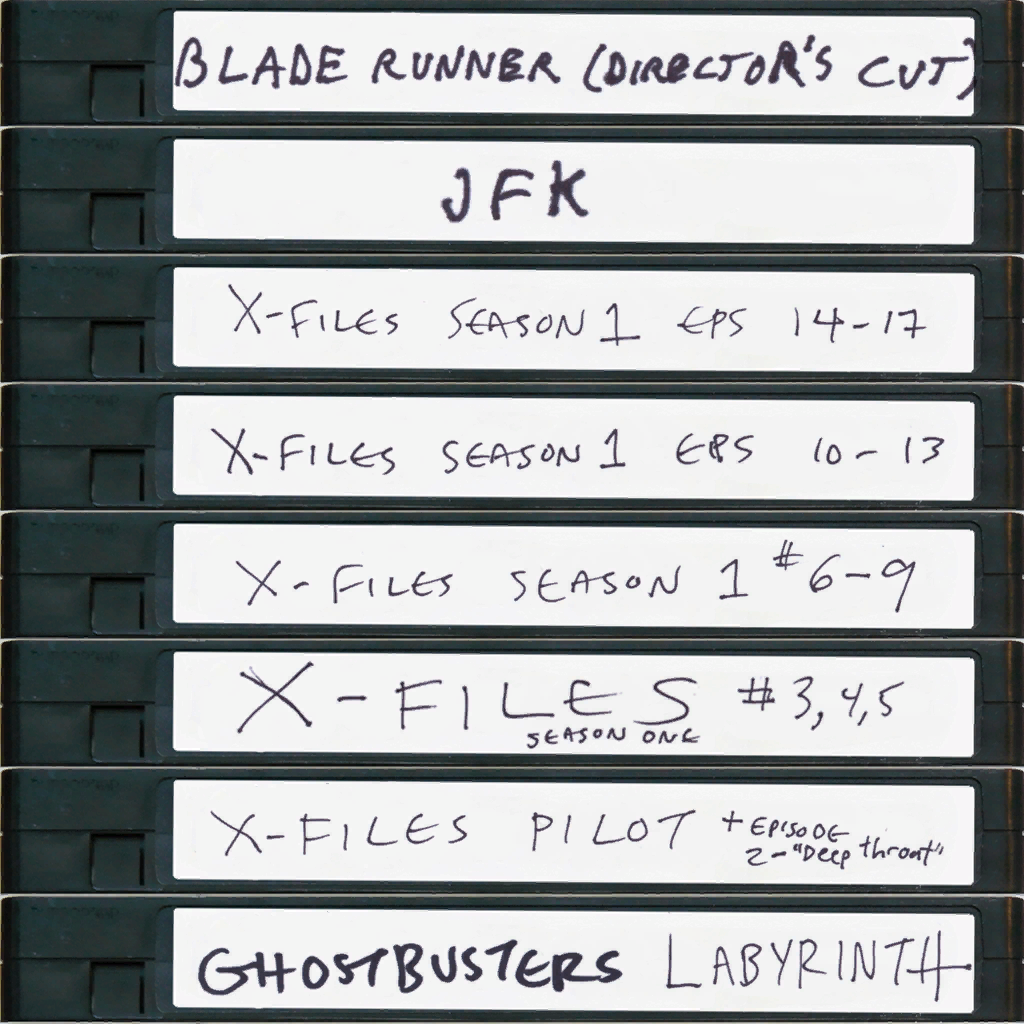 BLADE RUNNER (DIRECTOR'S CUT)
JFK
X-FILES SEASON 1 EPS 14-17
X-FILES SEASON 1 EPS 10-13
X-FILES SEASON 1 #6-9
X-FILES #3,4,5
SEASON ONE
X-FILES PILOT + EPISODE
2-"Deep throat"
GHOSTBUSTERS LABYRINTH